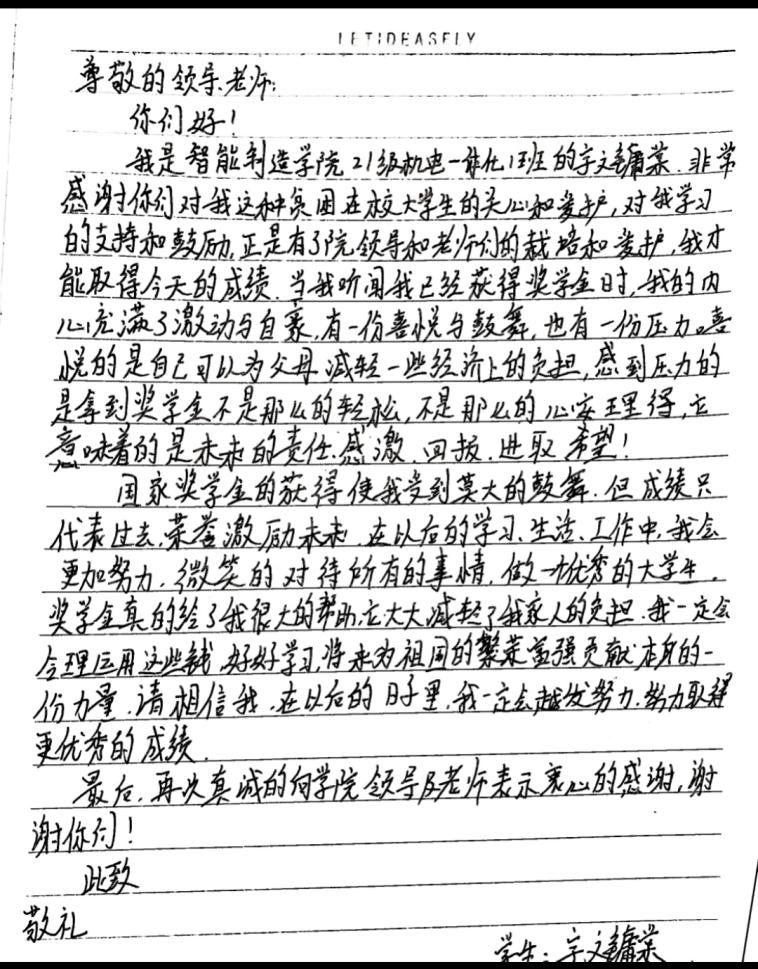 LETIDEASFLY
尊敬的领导、老师:
你们好!
我是智能制造学院21级机电一体化1班的宇文镛棠.非常
感谢你们对我这种贫困在校大学生的关心和爱护,对我学习
的支持和鼓励,正是有了院领导和老师们的栽培和爱护,我才
能取得今天的成绩.当我听闻我已经获得奖学金时,我的内
心充满了激动与自豪,有一份喜悦与鼓舞,也有一份压力。喜
悦的是自己可以为父母减轻一些经济上的负担,感到压力的
是拿到奖学金不是那么的轻松,不是那么的心安理得,它
意味着的是未来的责任.感激.回报.进取.希望!
国家奖学金的获得使我受到莫大的鼓舞.但成绩只
代表过去,荣誉激励未来.在以后的学习、生活、工作中,我会
更加努力.微笑的对待所有的事情,做一个优秀的大学生.
奖学金真的给了我很大的帮助,它大大减轻了我家人的负担.我一定会
合理运用这些钱,好好学习,将来为祖国的繁荣富强贡献本身的一
份力量.请相信我,在以后的日子里,我一定会越发努力.努力取得
更优秀的成绩.
最后,再次真诚的向学院领导及老师表示衷心的感谢,谢
谢你们!
此致
敬礼
学生:宇文镛棠